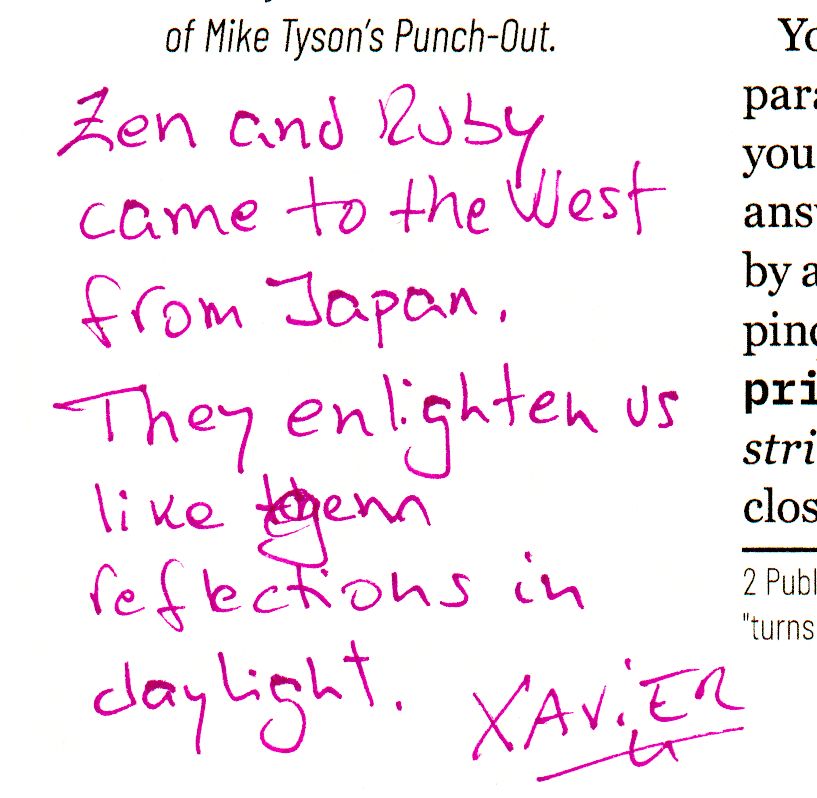 of Mike Tyson's Punch-Out.
Zen and Ruby
came to the West
from Japan.
They enlighten us
like gem
reflections in
daylight.
XAViER
Yo
para
you
ans
by a
pin
pri
stri
clos
2 Publ
"turns